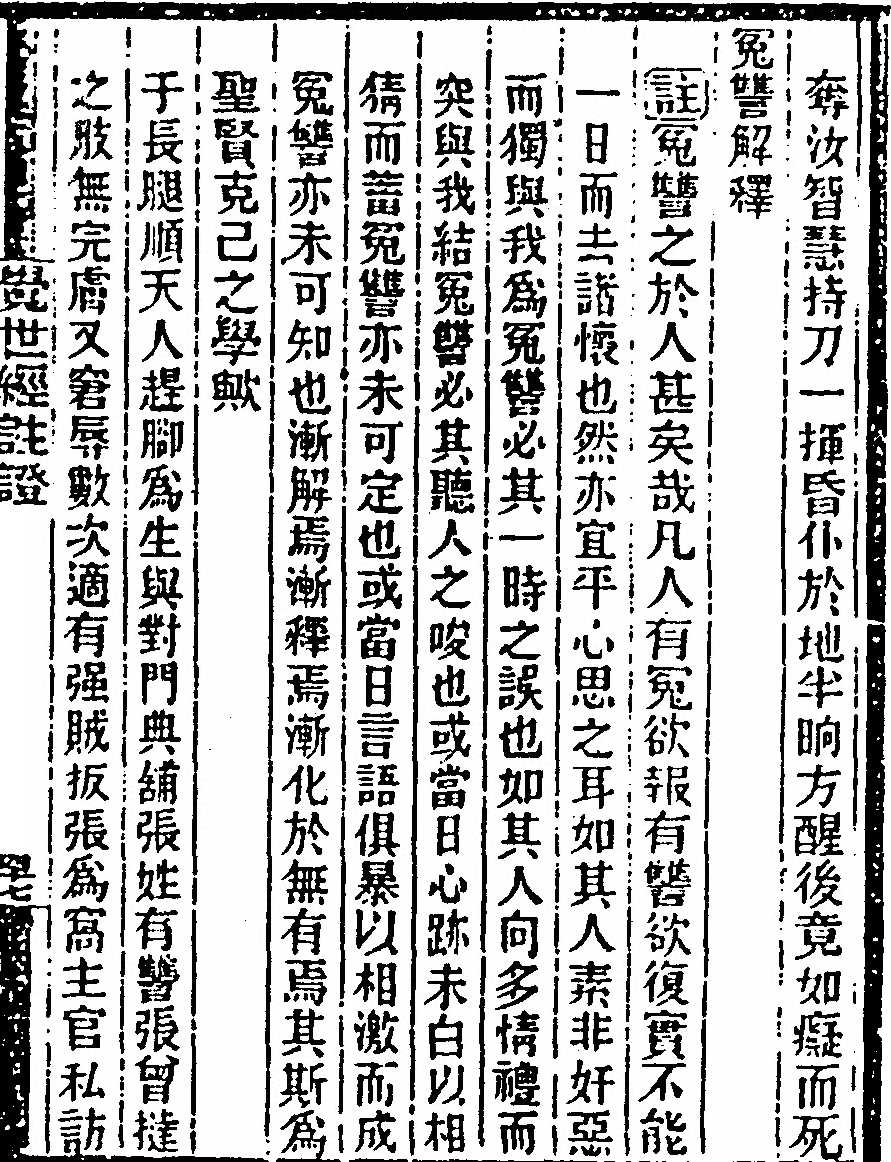 奪汝智慧持刀一揮昏仆於地半晌方醒後竟如癡而死
冤讐解釋
註冤讐之於人甚矣哉凡人有冤欲報有讐欲復實不能
一日而去諸懷也然亦宜平心思之耳如其人素非奸惡
而獨與我爲冤讐必其一時之誤也如其人向多情禮而
突與我結冤讐必其聽人之唆也或當日心跡未白以相
猜而蓄冤讐亦未可定也或當日言語俱暴以相激而成
冤讐亦未可知也漸解焉漸釋焉漸化於無有焉其斯爲
聖賢克己之學歟
于長腿順天人趕腳爲生與對門典舖張姓有讐張曾撻
之肢無完膚又窘辱數次適有强賊扳張爲窩主官私訪
覺世經註證
四七